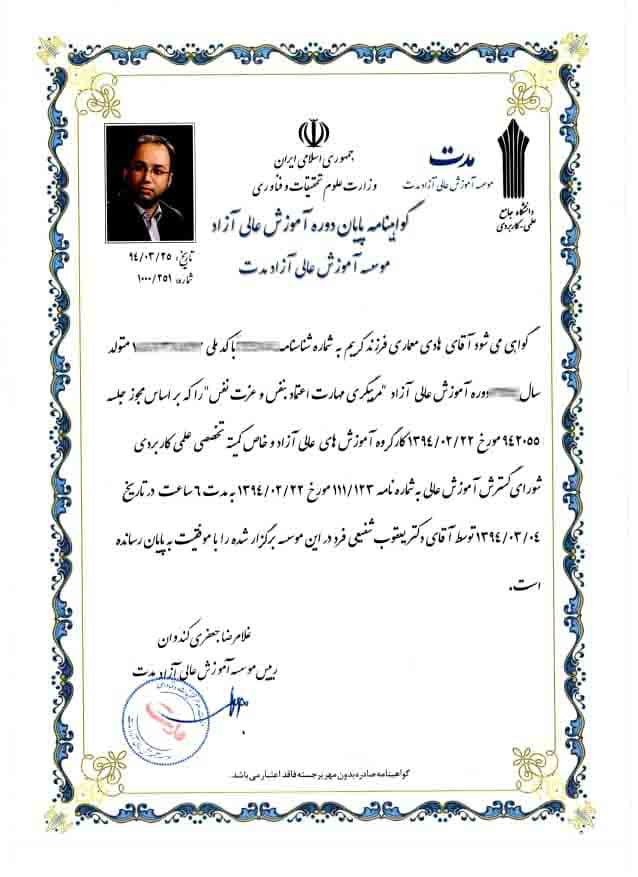 جمهوری اسلامی ایران
وزارت علوم تحقیقات و فناوری
مدت
موسسه آموزش عالی آزاد مدت
دانشگاه جامع
علمی-کاربردی
گواهینامه پایان دوره آموزش عالی آزاد
موسسه آموزش عالی آزاد مدت
تاریخ: ۹۴/۰۳/۲۵
شماره: ۱۰۰۰/۲۵۱
گواهی می شود آقای هادی معماری فرزند کریم به شماره شناسنامه با کد ملی ۱ متولد
سال دوره آموزش عالی آزاد "مربیگری مهارت اعتماد بنفس و عزت نفس" را که بر اساس مجوز جلسه
۹۴۲۰۵۵ مورخ ۱۳۹۴/۰۲/۲۲ کارگروه آموزش های عالی آزاد و خاص کمیته تخصصی علمی کاربردی
شورای گسترش آموزش عالی به شماره نامه ۱۱۱/۱۲۳ مورخ ۱۳۹۴/۰۲/۲۲ به مدت ۶ ساعت در تاریخ
۱۳۹۴/۰۳/۰۴ توسط آقای دکتر یعقوب شفیعی فرد در این موسسه برگزار شده را با موفقیت به پایان رسانده
است.
غلامرضا جعفری کندوان
رییس موسسه آموزش عالی آزاد مدت
گواهینامه صادره بدون مهر برجسته فاقد اعتبار می باشد.